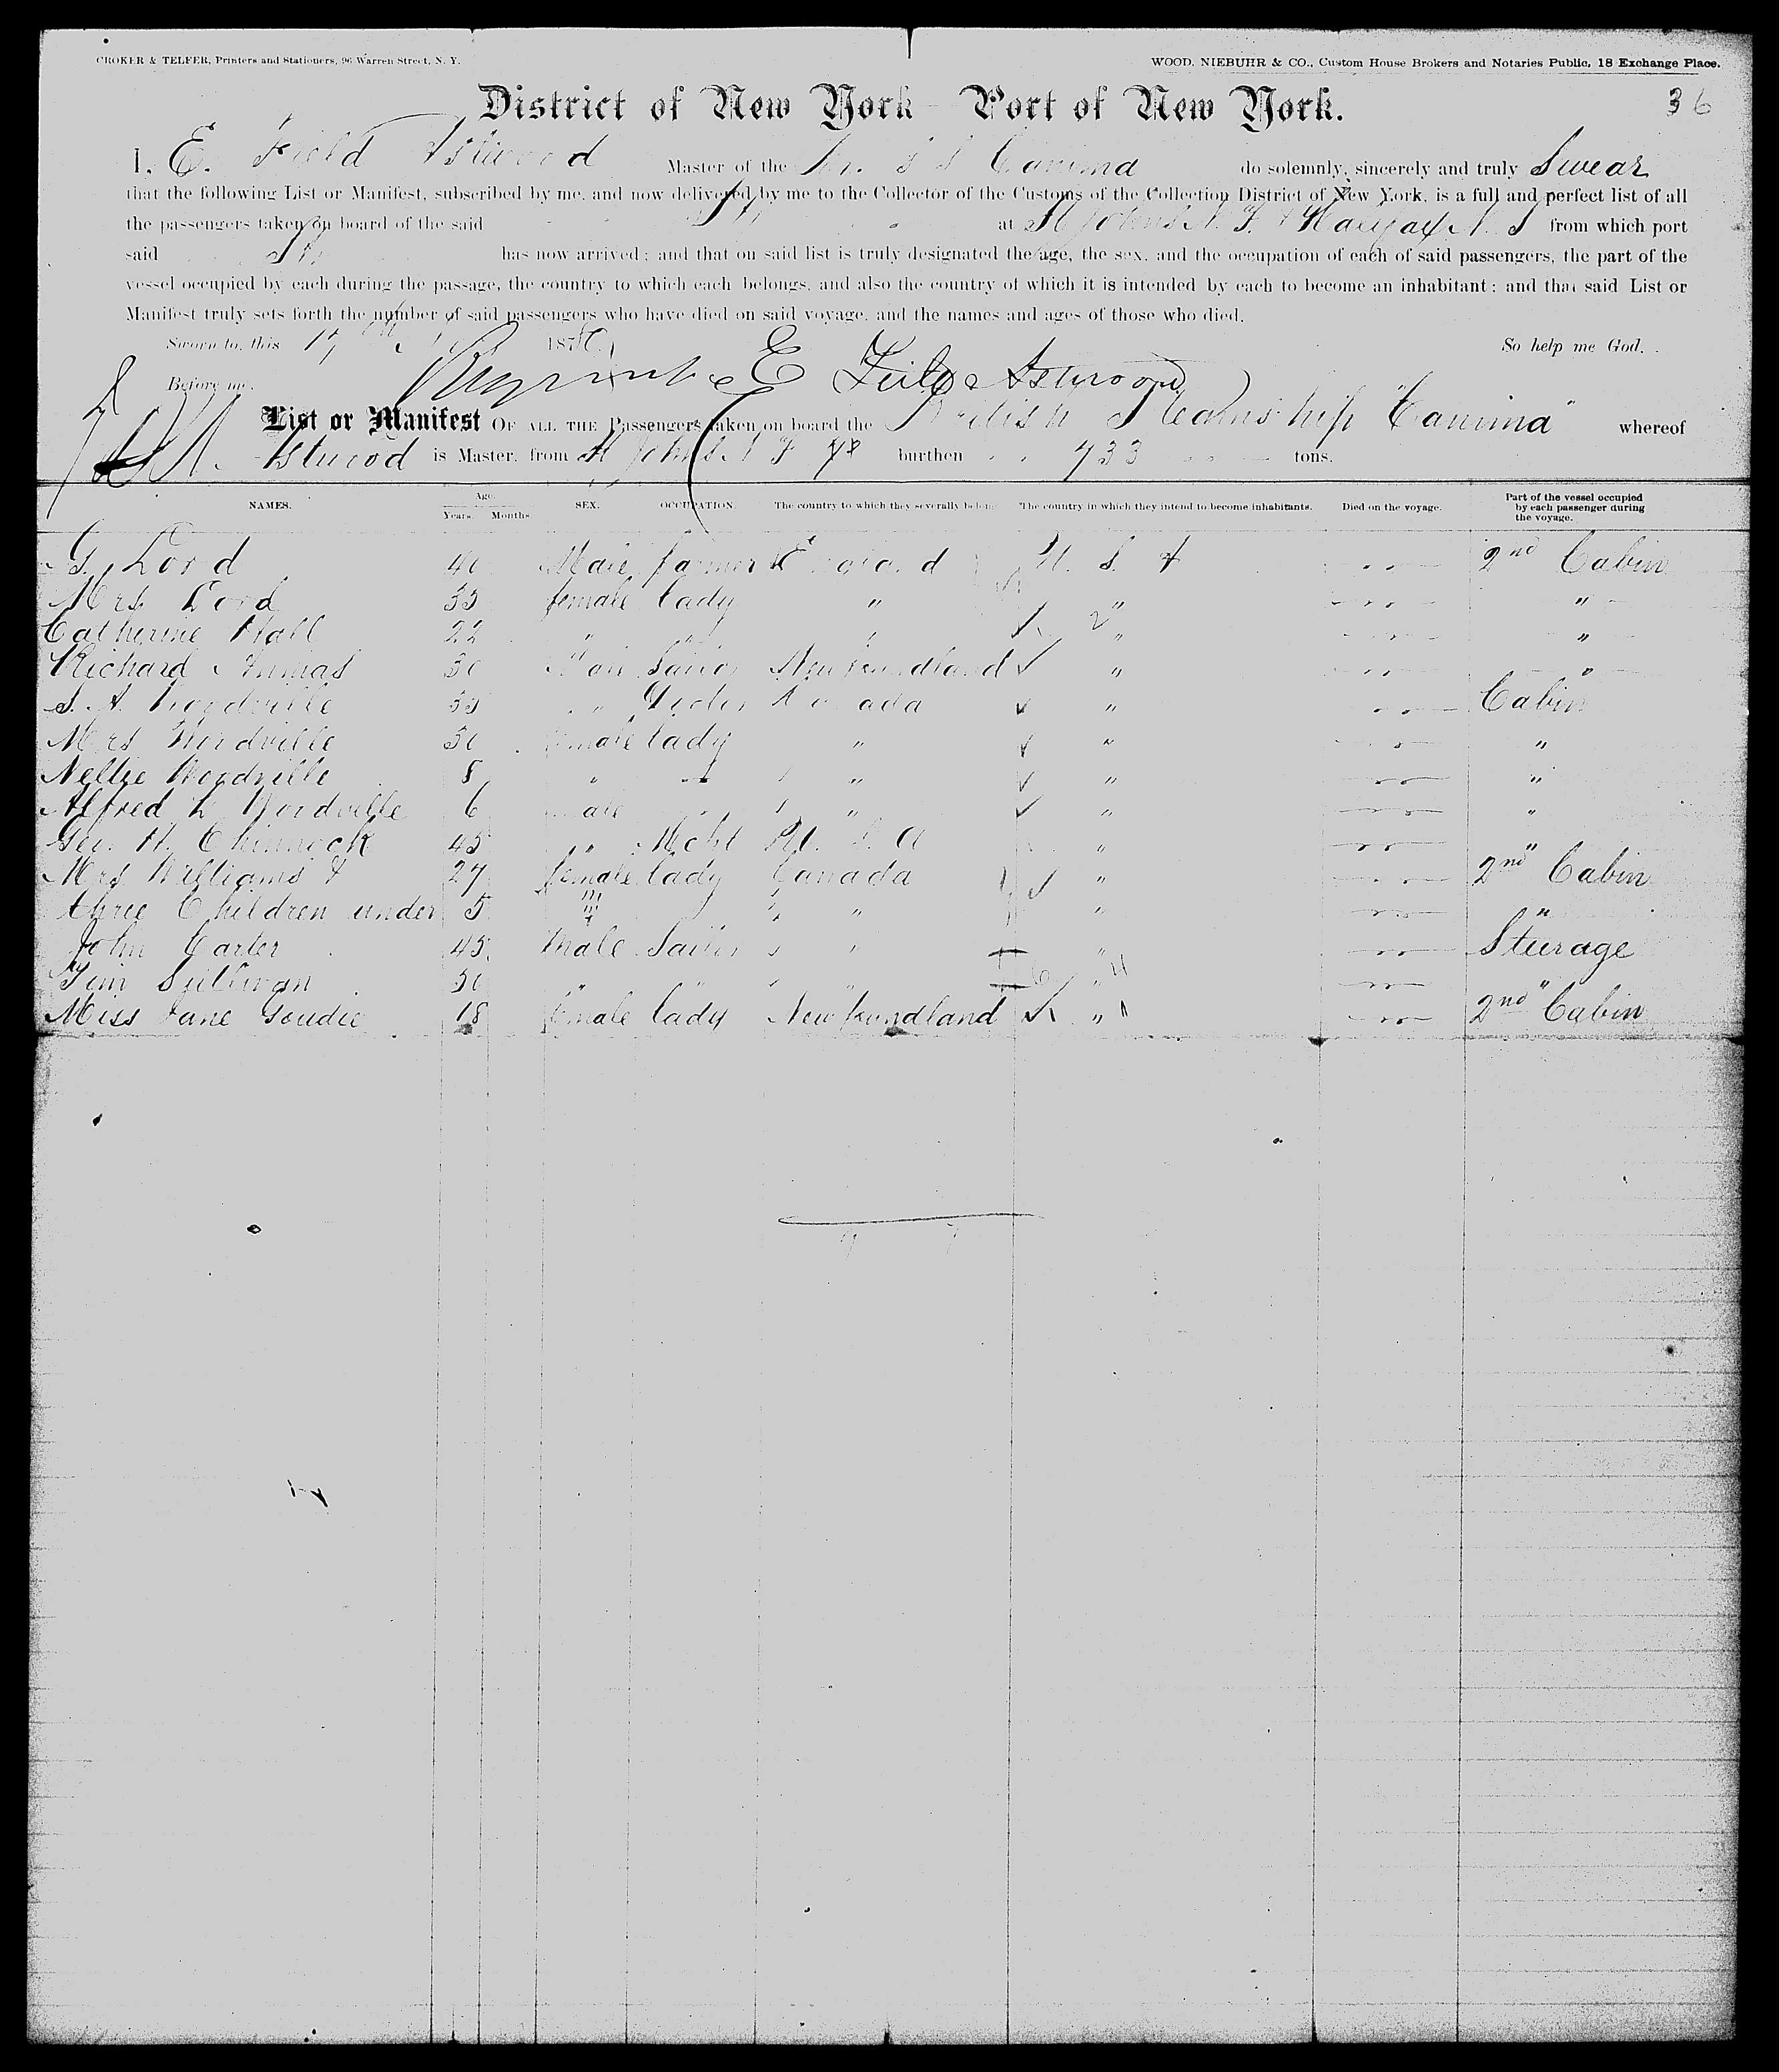 CROKER & TELFER, Printers and Stationers, 96 Warren Street, N. Y.
WOOD, NIEBUHR & CO., Custom House Brokers and Notaries Public, 18 Exchange Place.
District of New York - Port of New York.
36
I, E. Field Astwood Master of the Br. S S Canima do solemnly, sincerely and truly Swear
that the following List or Manifest, subscribed by me, and now delivered by me to the Collector of the Customs of the Collection District of New York, is a full and perfect list of all
the passengers taken on board of the said at St Johns N. F. & Halifax N. S from which port
said has now arrived; and that on said list is truly designated the age, the sex, and the occupation of each of said passengers, the part of the
vessel occupied by each during the passage, the country to which each belongs, and also the country of which it is intended by each to become an inhabitant; and that said List or
Manifest truly sets forth the number of said passengers who have died on said voyage, and the names and ages of those who died.
Sworn to, this 17th 187 So help me God.
Before me, E Field Astwood
List or Manifest OF ALL THE Passengers taken on board the British Steamship "Canima" whereof
Astwood is Master, from St Johns N F burthen 733 tons.
NAMES. Age. Years. Months. SEX. OCCUPATION. The country to which they severally belong. The country in which they intend to become inhabitants. Died on the voyage. Part of the vessel occupied by each passenger during the voyage.
G. Lord 40 Male farmer England U. S. A 2nd Cabin
Mrs Lord 35 female lady " " "
Catherine Hall 22 " " " " "
Richard 30 Male Sailor Newfoundland " "
S. A. Woodville 35 " Canada " Cabin
Mrs Woodville 30 female lady " " "
Nellie Woodville 8 " " " "
Alfred Woodville 6 male " " "
Geo. H. Chinnock 45 " Mcht U. S. A " "
Mrs Williams & 27 female lady Canada " 2nd Cabin
three Children under 5 " " "
John Carter 45 male Sailor " " Sturage
Tim Sullivan 30 " " " " "
Miss Jane Goudie 18 female lady Newfoundland " 2nd Cabin